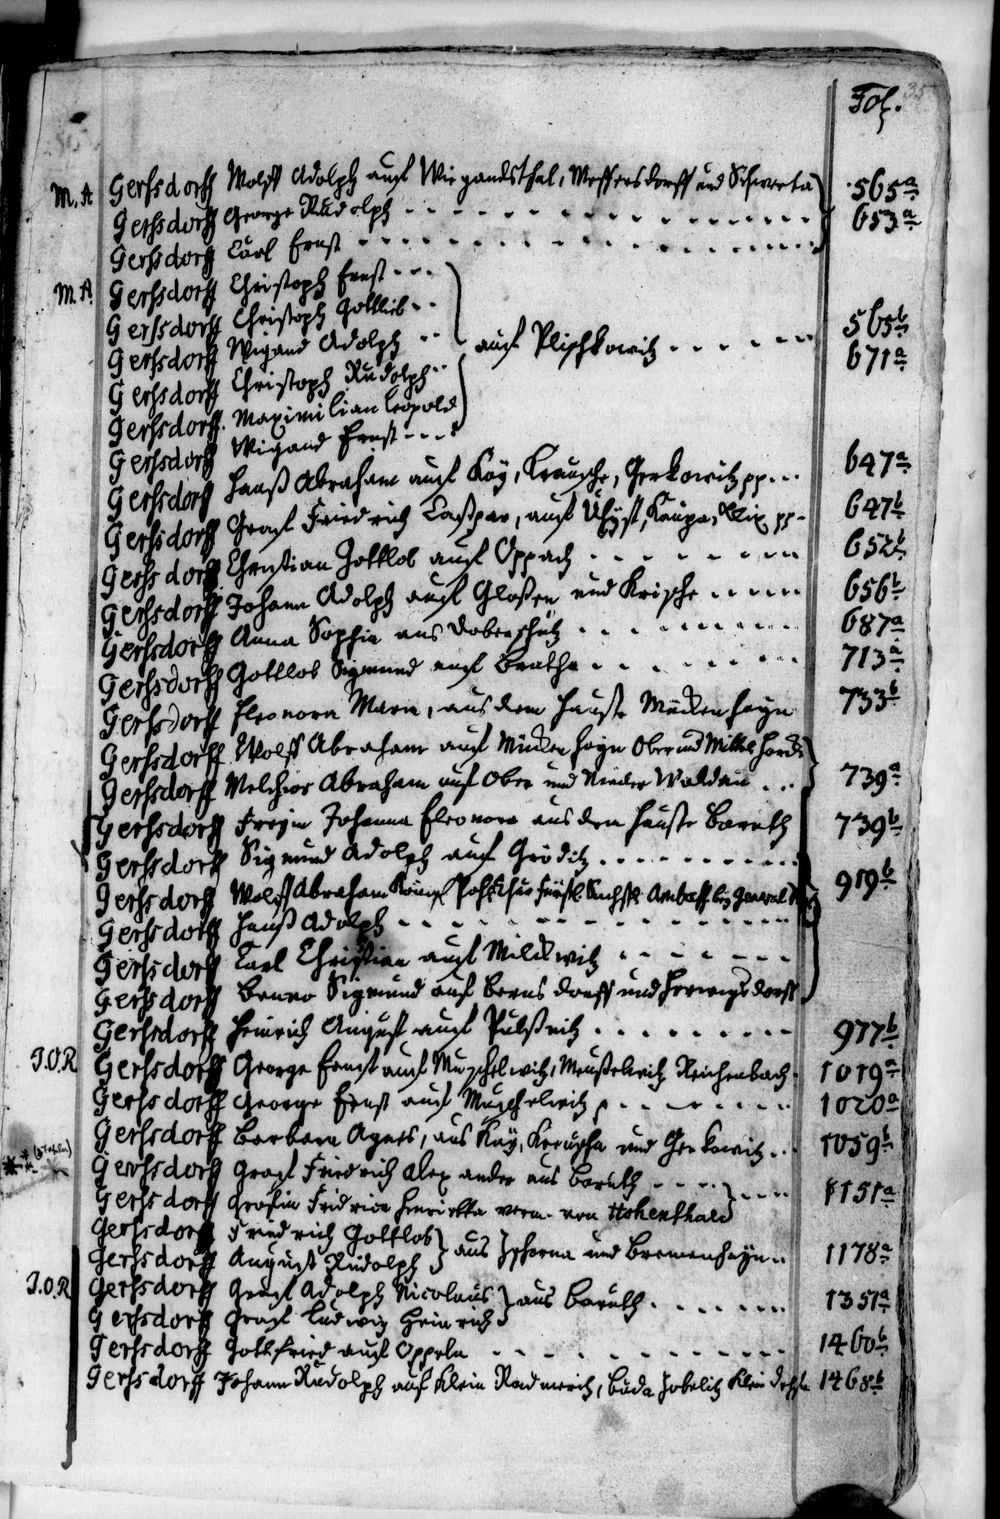 Fol.
35
M. A Gersdorff Wolff Adolph auf Wiegandsthal, Meffersdorff und Schwerta 565a
Gersdorff George Rudolph 653a
Gersdorff Carl Ernst
M. A. Gersdorff Christoph Ernst
Gersdorff Christoph Gottlieb
Gersdorff Wigand Adolph auf Plischkowitz 565b 671a
Gersdorff Christoph Rudolph
Gersdorff Maximilian Leopold
Gersdorff Wigand Ernst
Gersdorff Hanß Abraham auf Kay, Krausche, Gerkowitz pp. 647a
Gersdorff Graf Friedrich Caßpar, auf Uhyst, Kaupe, Klix pp 647b
Gersdorff Christian Gottlob auf Oppach 652b
Gersdorff Johann Adolph auf Gloßen und Krische 656b
Gersdorff Anna Sophia aus Doberschütz 687a
Gersdorff Gottlob Sigmund auf Baruth 713a
Gersdorff Eleonora Maria, aus dem Hauße Mückenhayn 733b
Gersdorff Wolff Abraham auf Mückenhayn Ober und Mittel Horcke
Gersdorff Melchior Abraham auf Ober und Nieder Waldau 739a
Gersdorff Freyin Johanna Eleonora aus den Hauße Baruth 739b
Gersdorff Sigmund Adolph auf Gröditz
Gersdorff Wolff Abraham Königl. Pohl. Churfürstl. Sächß. General 919b
Gersdorff Hanß Adolph
Gersdorff Carl Christian auf Milckwitz
Gersdorff Benno Sigmund auf Bernsdorff und Herwigsdorff
Gersdorff Heinrich August auf Pulßnitz 977b
J.O.R Gersdorff George Ernst auf Muschelwitz, Meußelwitz Reichenbach 1019a
Gersdorff George Ernst auf Muschelwitz 1020a
Gersdorff Barbara Agnes, aus Kay, Krausche und Gerkowitz 1059b
Gersdorff Graf Friedrich Alexander aus Baruth
Gersdorff Gräfin Fridrica Henrietta verm. von Hohenthal 1151a
Gersdorff Friedrich Gottlob
Gersdorff August Rudolph aus Zschorna und Bremenhayn 1178a
J.O.R Gersdorff Graf Adolph Nicolaus aus Baruth 1351a
Gersdorff Graf Ludwig Heinrich
Gersdorff Gottfried auf Oppeln 1460b
Gersdorff Johann Rudolph auf Klein Radmeritz, Buda Zobelitz Klein 1468b